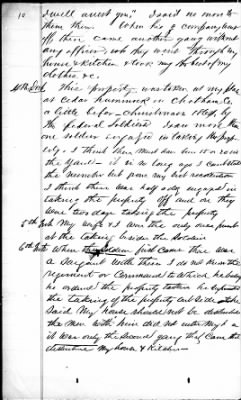 10
I will arrest you" I said no more to
them then. When the company
off there came another gang without
any officer and they went through my
house & kitchen & took my the best of my
clothes &c.
4th Int This property was taken at my place
at Cedar Hammock in Chatham Co
a little before Christmas 1864 by
the federal soldiers I saw more than
one soldier engaged in taking the prop-
erty. I think there must been 15 or 20 in
the yard - it is so long ago I cant tell
the number but from my best recollection
I think there was half a day engaged in
taking the property off and or they
were two days taking the property
5th Int My wife & I were the only ones present
at the taking beside the soldiers
6th Int When first came there was
a Sergeant with them I do not know the
regiment or Command to which he belonged
he ordered the property taken he
the taking of the property out side
said My house should not be disturbed
the men with him did not enter My h
it was only the second gang that came that
My house & Kitchen -